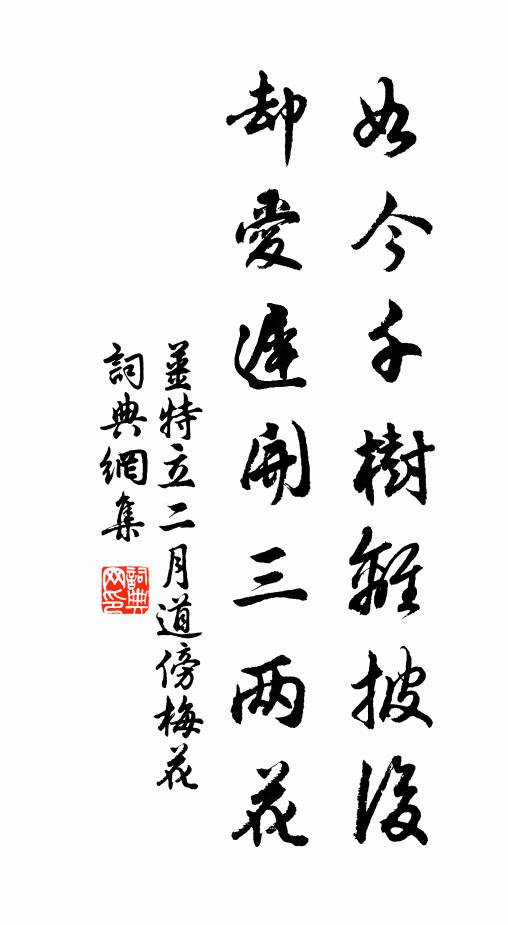 如今千樹離披後
却愛遲開三兩花
姜特立二月道傍梅花
詞典網集
詞典網印